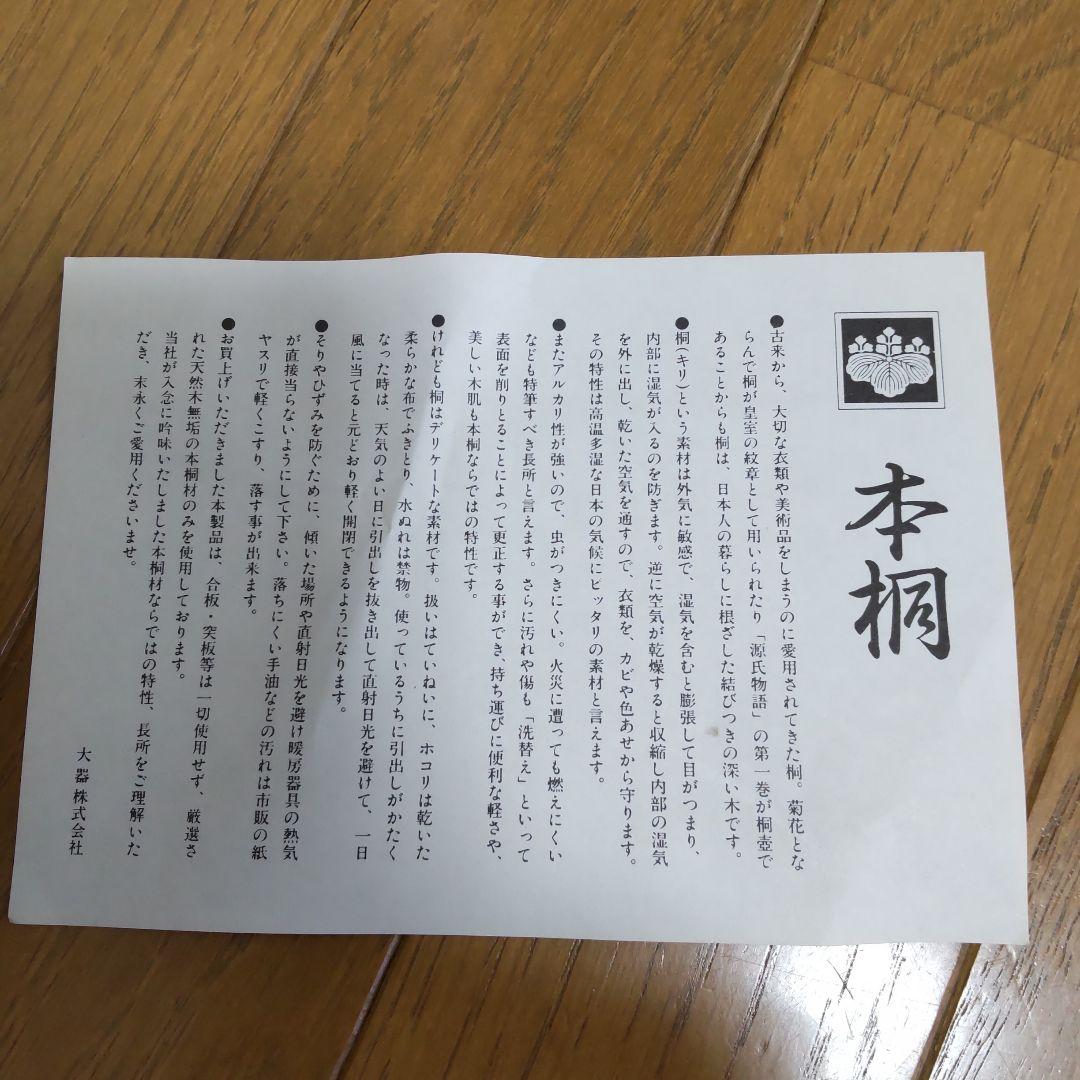 本桐
●古来から、大切な衣類や美術品をしまうのに愛用されてきた桐。菊花とな
らんで桐が皇室の紋章として用いられたり「源氏物語」の第一巻が桐壺で
あることからも桐は、日本人の暮らしに根ざした結びつきの深い木です。
●桐（キリ）という素材は外気に敏感で、湿気を含むと膨張して目がつまり、
内部に湿気が入るのを防ぎます。逆に空気が乾燥すると収縮し内部の湿気
を外に出し、乾いた空気を通すので、衣類を、カビや色あせから守ります。
その特性は高温多湿な日本の気候にピッタリの素材と言えます。
●またアルカリ性が強いので、虫がつきにくい。火災に遭っても燃えにくい
なども特筆すべき長所と言えます。さらに汚れや傷も「洗替え」といって
表面を削りとることによって更正する事ができ、持ち運びに便利な軽さや、
美しい木肌も本桐ならではの特性です。
●けれども桐はデリケートな素材です。扱いはていねいに、ホコリは乾いた
柔らかな布でふきとり、水ぬれは禁物。使っているうちに引出しがかたく
なった時は、天気のよい日に引出しを抜き出して直射日光を避けて、一日
風に当てると元どおり軽く開閉できるようになります。
●そりやひずみを防ぐために、傾いた場所や直射日光を避け暖房器具の熱気
が直接当らないようにして下さい。落ちにくい手油などの汚れは市販の紙
ヤスリで軽くこすり、落す事が出来ます。
●お買上げいただきました本製品は、合板・突板等は一切使用せず、厳選さ
れた天然木無垢の本桐材のみを使用しております。
当社が入念に吟味いたしました本桐材ならではの特性、長所をご理解いた
だき、末永くご愛用くださいませ。
大器株式会社